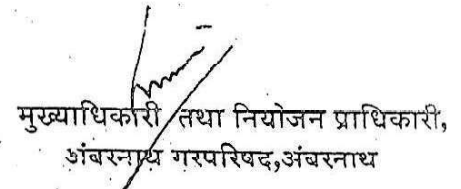 मुख्याधिकारी तथा नियोजन प्राधिकारी,
अंबरनाथ गरपरिषद,अंबरनाथ